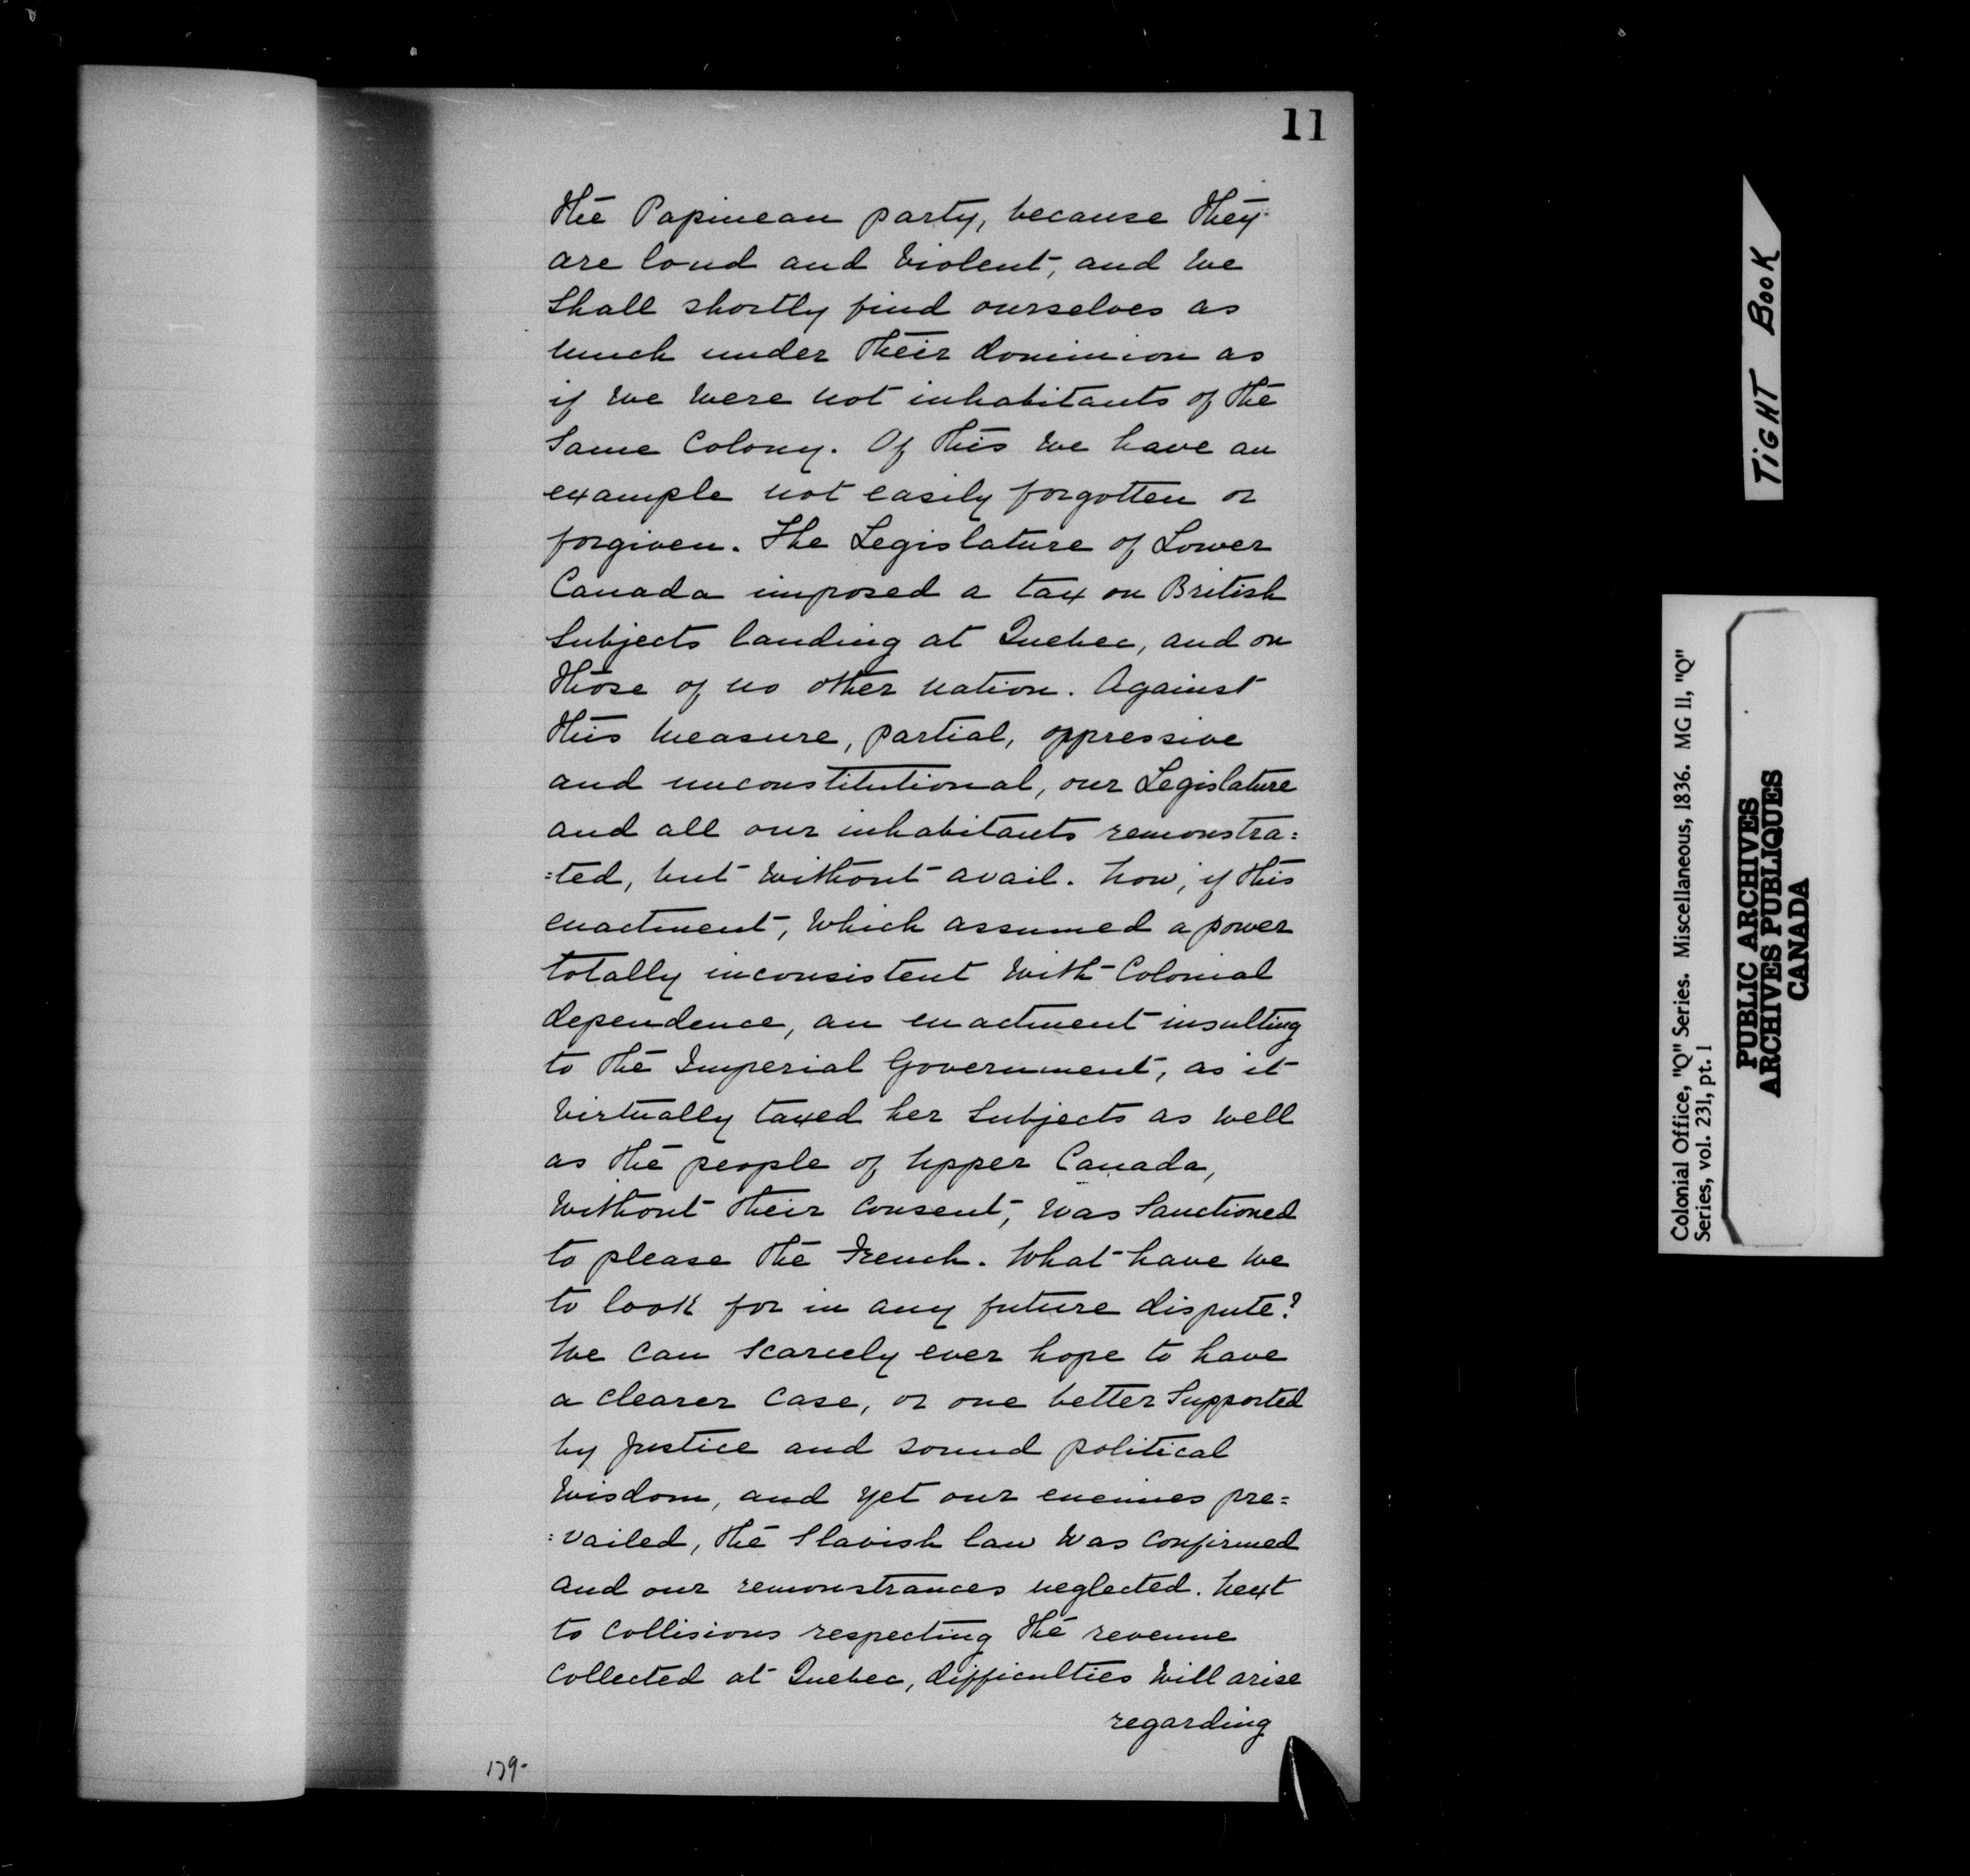 11
the Papineau party, because they
are loud and violent, and we
shall shortly find ourselves as
much under their dominion as
if we were not inhabitants of the
same Colony. Of this we have an
example not easily forgotten or
forgiven. The Legislature of Lower
Canada imposed a tax on British
Subjects landing at Quebec, and on
those of no other nation. Against
this measure, partial, oppressive
and unconstitutional, our Legislature
and all our inhabitants remonstra=
=ted, but without avail. Now, if this
enactment, which assumed a power
totally inconsistent with Colonial
dependence, an enactment insulting
to the Imperial Government, as it
virtually taxed her Subjects as well
as the people of Upper Canada,
without their consent, was sanctioned
to please the French. What have we
to look for in any future dispute?
We can scarcely ever hope to have
a clearer case, or one better supported
by justice and sound political
wisdom, and yet our enemies pre=
=vailed, the slavish law was confirmed
and our remonstrances neglected. Next
to collisions respecting the revenue
collected at Quebec, difficulties will arise
regarding
139-
TIGHT BOOK
Colonial Office, "Q" Series. Miscellaneous, 1836. MG 11, "Q"
Series, vol. 231, pt. 1
PUBLIC ARCHIVES
ARCHIVES PUBLIQUES
CANADA